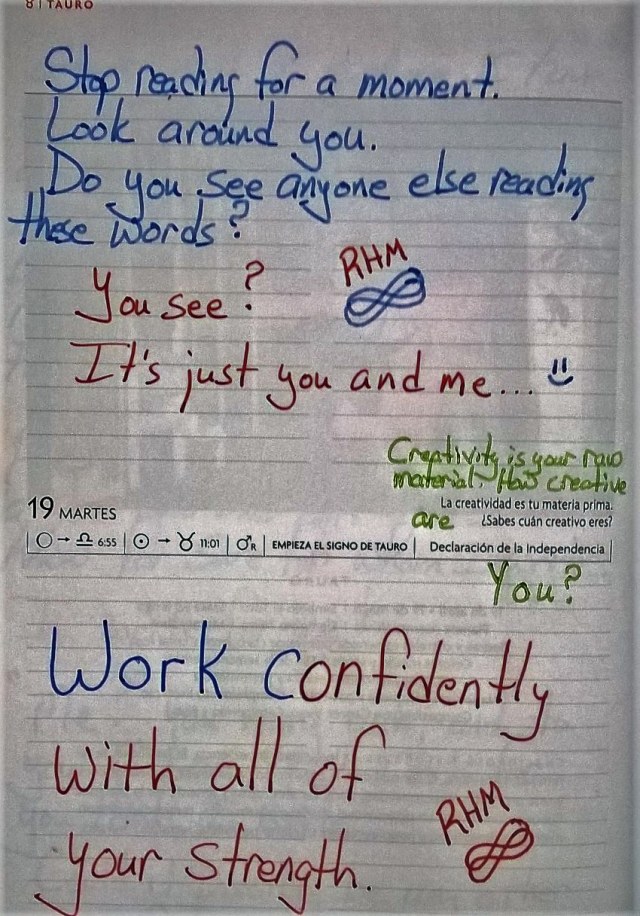 8 | TAURO
Stop reading for a moment.
Look around you.
Do you see anyone else reading
these words?
RHM
You see?
It's just you and me...
Creativity is your raw
material. How creative
19 MARTES
La creatividad es tu materia prima.
are ¿Sabes cuán creativo eres?
○ → ♎ 6:55 | ☉ → ♉ 11:01 | ♂R | EMPIEZA EL SIGNO DE TAURO | Declaración de la Independencia
You?
Work Confidently
with all of
RHM
your strength.